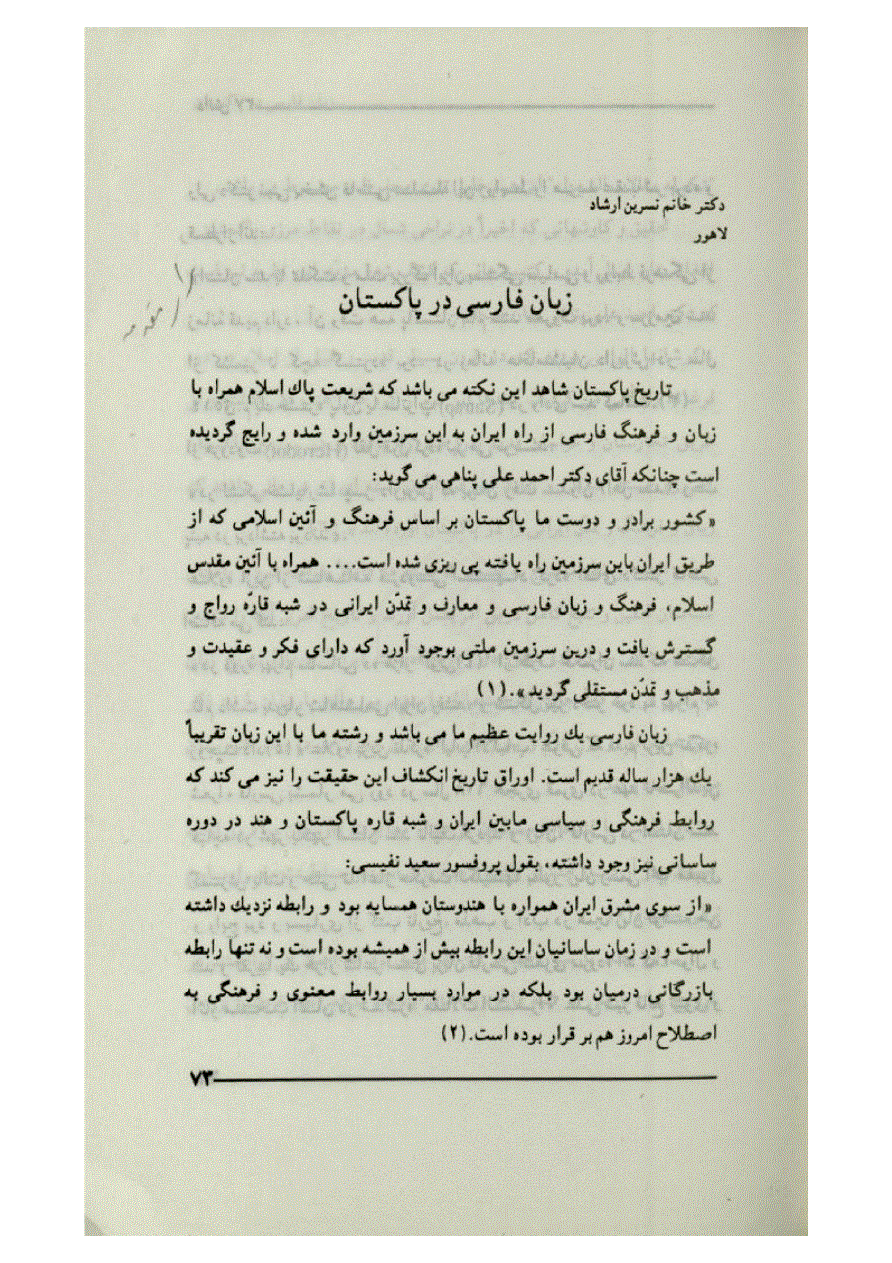 دکتر خانم نسرین ارشاد
لاهور
زبان فارسی در پاکستان
تاریخ پاکستان شاهد این نکته می باشد که شریعت پاك اسلام همراه با
زبان و فرهنگ فارسی از راه ایران به این سرزمین وارد شده و رایج گردیده
است چنانکه آقای دکتر احمد علی پناهی می گوید:
«کشور برادر و دوست ما پاکستان بر اساس فرهنگ و آئین اسلامی که از
طریق ایران باین سرزمین راه یافته پی ریزی شده است.... همراه با آئین مقدس
اسلام، فرهنگ و زبان فارسی و معارف و تمدّن ایرانی در شبه قارّه رواج و
گسترش یافت و درین سرزمین ملتی بوجود آورد که دارای فکر و عقیدت و
مذهب و تمدّن مستقلی گردید».(۱)
زبان فارسی یك روایت عظیم ما می باشد و رشته ما با این زبان تقریباً
یك هزار ساله قدیم است. اوراق تاریخ انکشاف این حقیقت را نیز می کند که
روابط فرهنگی و سیاسی مابین ایران و شبه قاره پاکستان و هند در دوره
ساسانی نیز وجود داشته، بقول پروفسور سعید نفیسی:
«از سوی مشرق ایران همواره با هندوستان همسایه بود و رابطه نزدیك داشته
است و در زمان ساسانیان این رابطه بیش از همیشه بوده است و نه تنها رابطه
بازرگانی درمیان بود بلکه در موارد بسیار روابط معنوی و فرهنگی به
اصطلاح امروز هم بر قرار بوده است.(۲)
۷۳